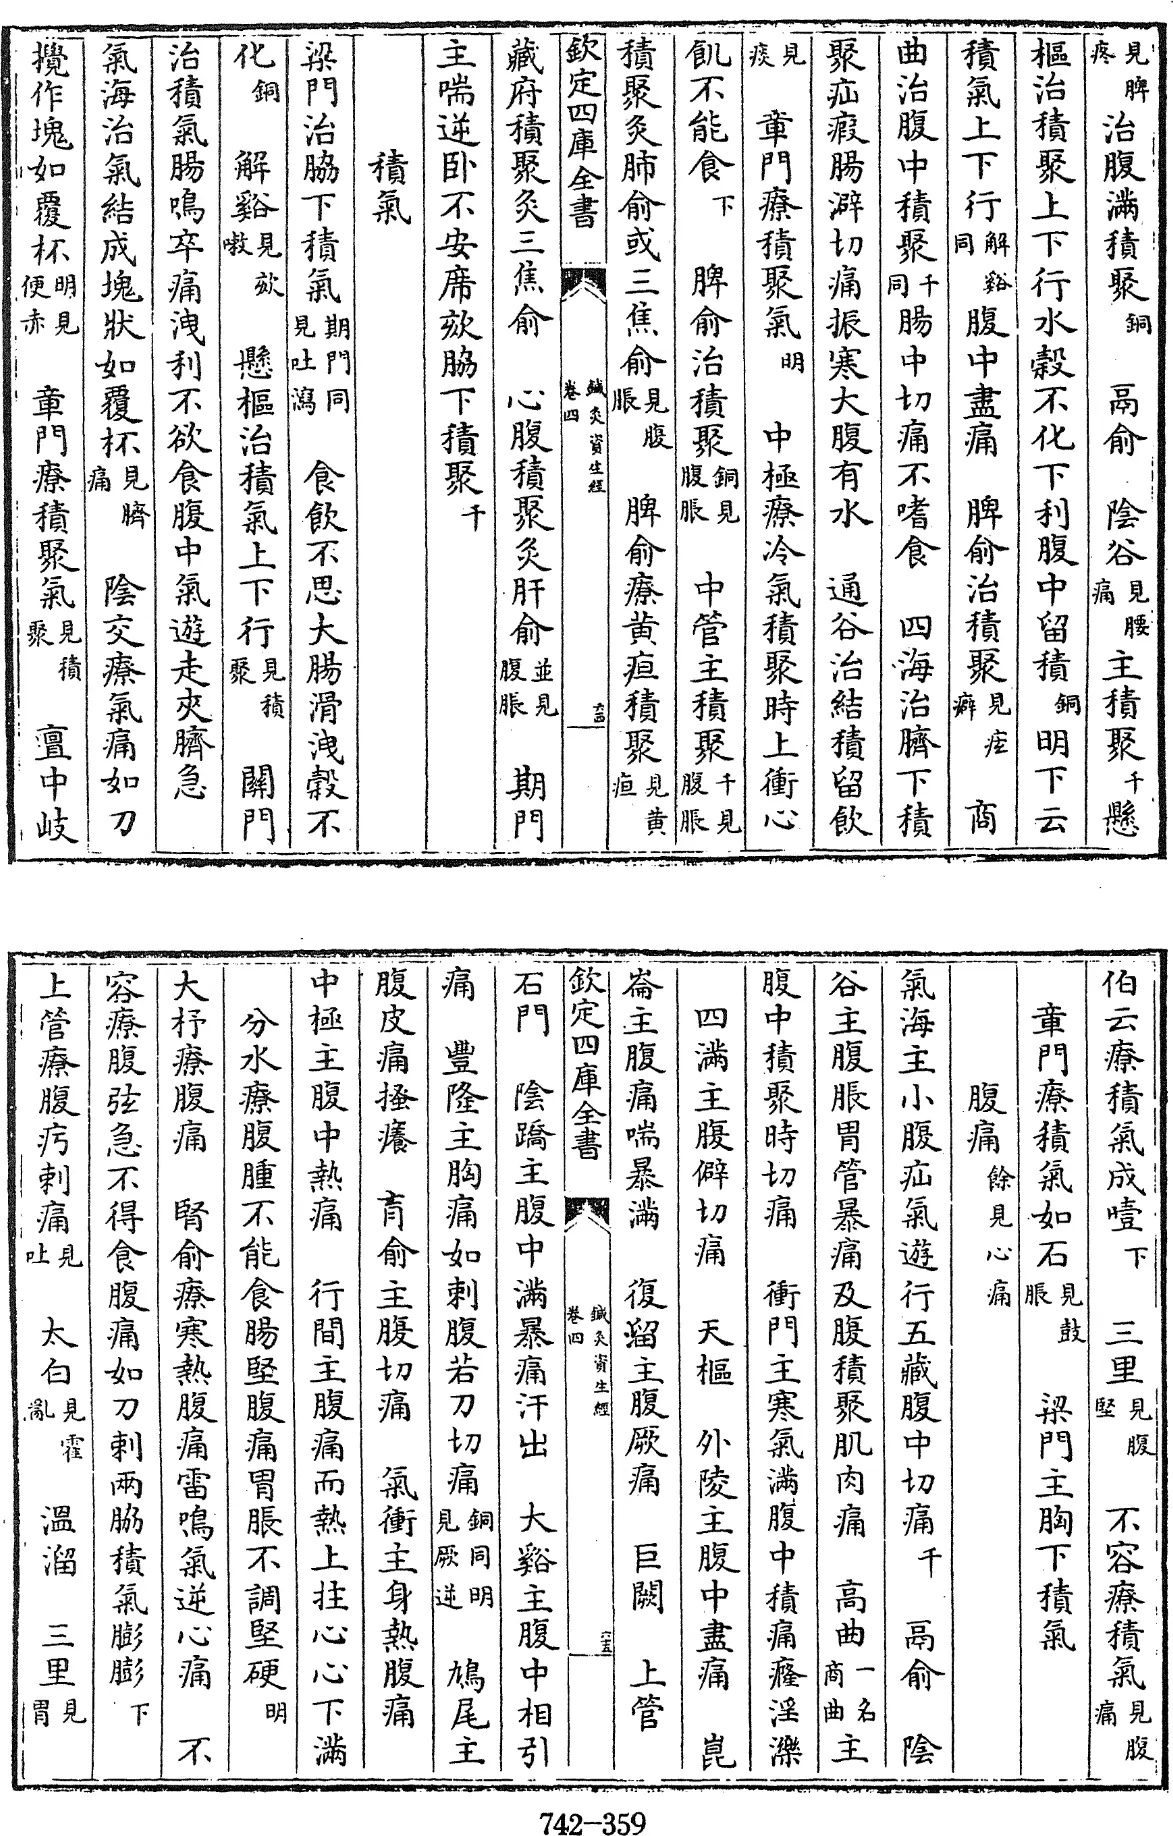 見脾疼治腹滿積聚銅　鬲俞　陰谷見腰痛主積聚千懸
樞治積聚上下行水穀不化下利腹中留積銅明下云
積氣上下行解谿同腹中盡痛　脾俞治積聚見疰癖　商
曲治腹中積聚千同腸中切痛不嗜食　四海治臍下積
聚疝瘕腸澼切痛振寒大腹有水　通谷治結積留飲
見痰　章門療積聚氣明　中極療冷氣積聚時上衝心
飢不能食下　脾俞治積聚銅見腹脹　中管主積聚千見腹脹
積聚灸肺俞或三焦俞見腹脹　脾俞療黄疸積聚見黄疸
欽定四庫全書　鍼灸資生經卷四　六四
藏府積聚灸三焦俞　心腹積聚灸肝俞並見腹脹　期門
主喘逆卧不安席欬脇下積聚千
積氣
梁門治脇下積氣期門同見吐瀉　食飲不思大腸滑洩穀不
化銅　解谿見欬嗽　懸樞治積氣上下行見積聚　關門
治積氣腸鳴卒痛洩利不欲食腹中氣遊走夾臍急
氣海治氣結成塊狀如覆杯見臍痛　陰交療氣痛如刀
攪作塊如覆杯明見便赤　章門療積聚氣見積聚　亶中岐
伯云療積氣成噎下　三里見腹堅　不容療積氣見腹痛
章門療積氣如石見鼓脹　梁門主胸下積氣
腹痛餘見心痛
氣海主小腹疝氣遊行五藏腹中切痛千　鬲俞　陰
谷主腹脹胃管暴痛及腹積聚肌肉痛　高曲一名商曲主
腹中積聚時切痛　衝門主寒氣滿腹中積痛癃淫濼
四滿主腹僻切痛　天樞　外陵主腹中盡痛　崑
崙主腹痛喘暴滿　復溜主腹厥痛　巨闕　上管
欽定四庫全書　鍼灸資生經卷四　六五
石門　陰蹻主腹中滿暴痛汗出　大谿主腹中相引
痛　豐隆主胸痛如刺腹若刀切痛銅同明見厥逆　鳩尾主
腹皮痛搔癢　肓俞主腹切痛　氣衝主身熱腹痛
中極主腹中熱痛　行間主腹痛而熱上拄心心下滿
分水療腹腫不能食腸堅腹痛胃脹不調堅硬明
大杼療腹痛　腎俞療寒熱腹痛雷鳴氣逆心痛　不
容療腹弦急不得食腹痛如刀刺兩脇積氣膨膨下
上管療腹㽲刺痛見吐　太白見霍亂　溫溜　三里見胃
742-359